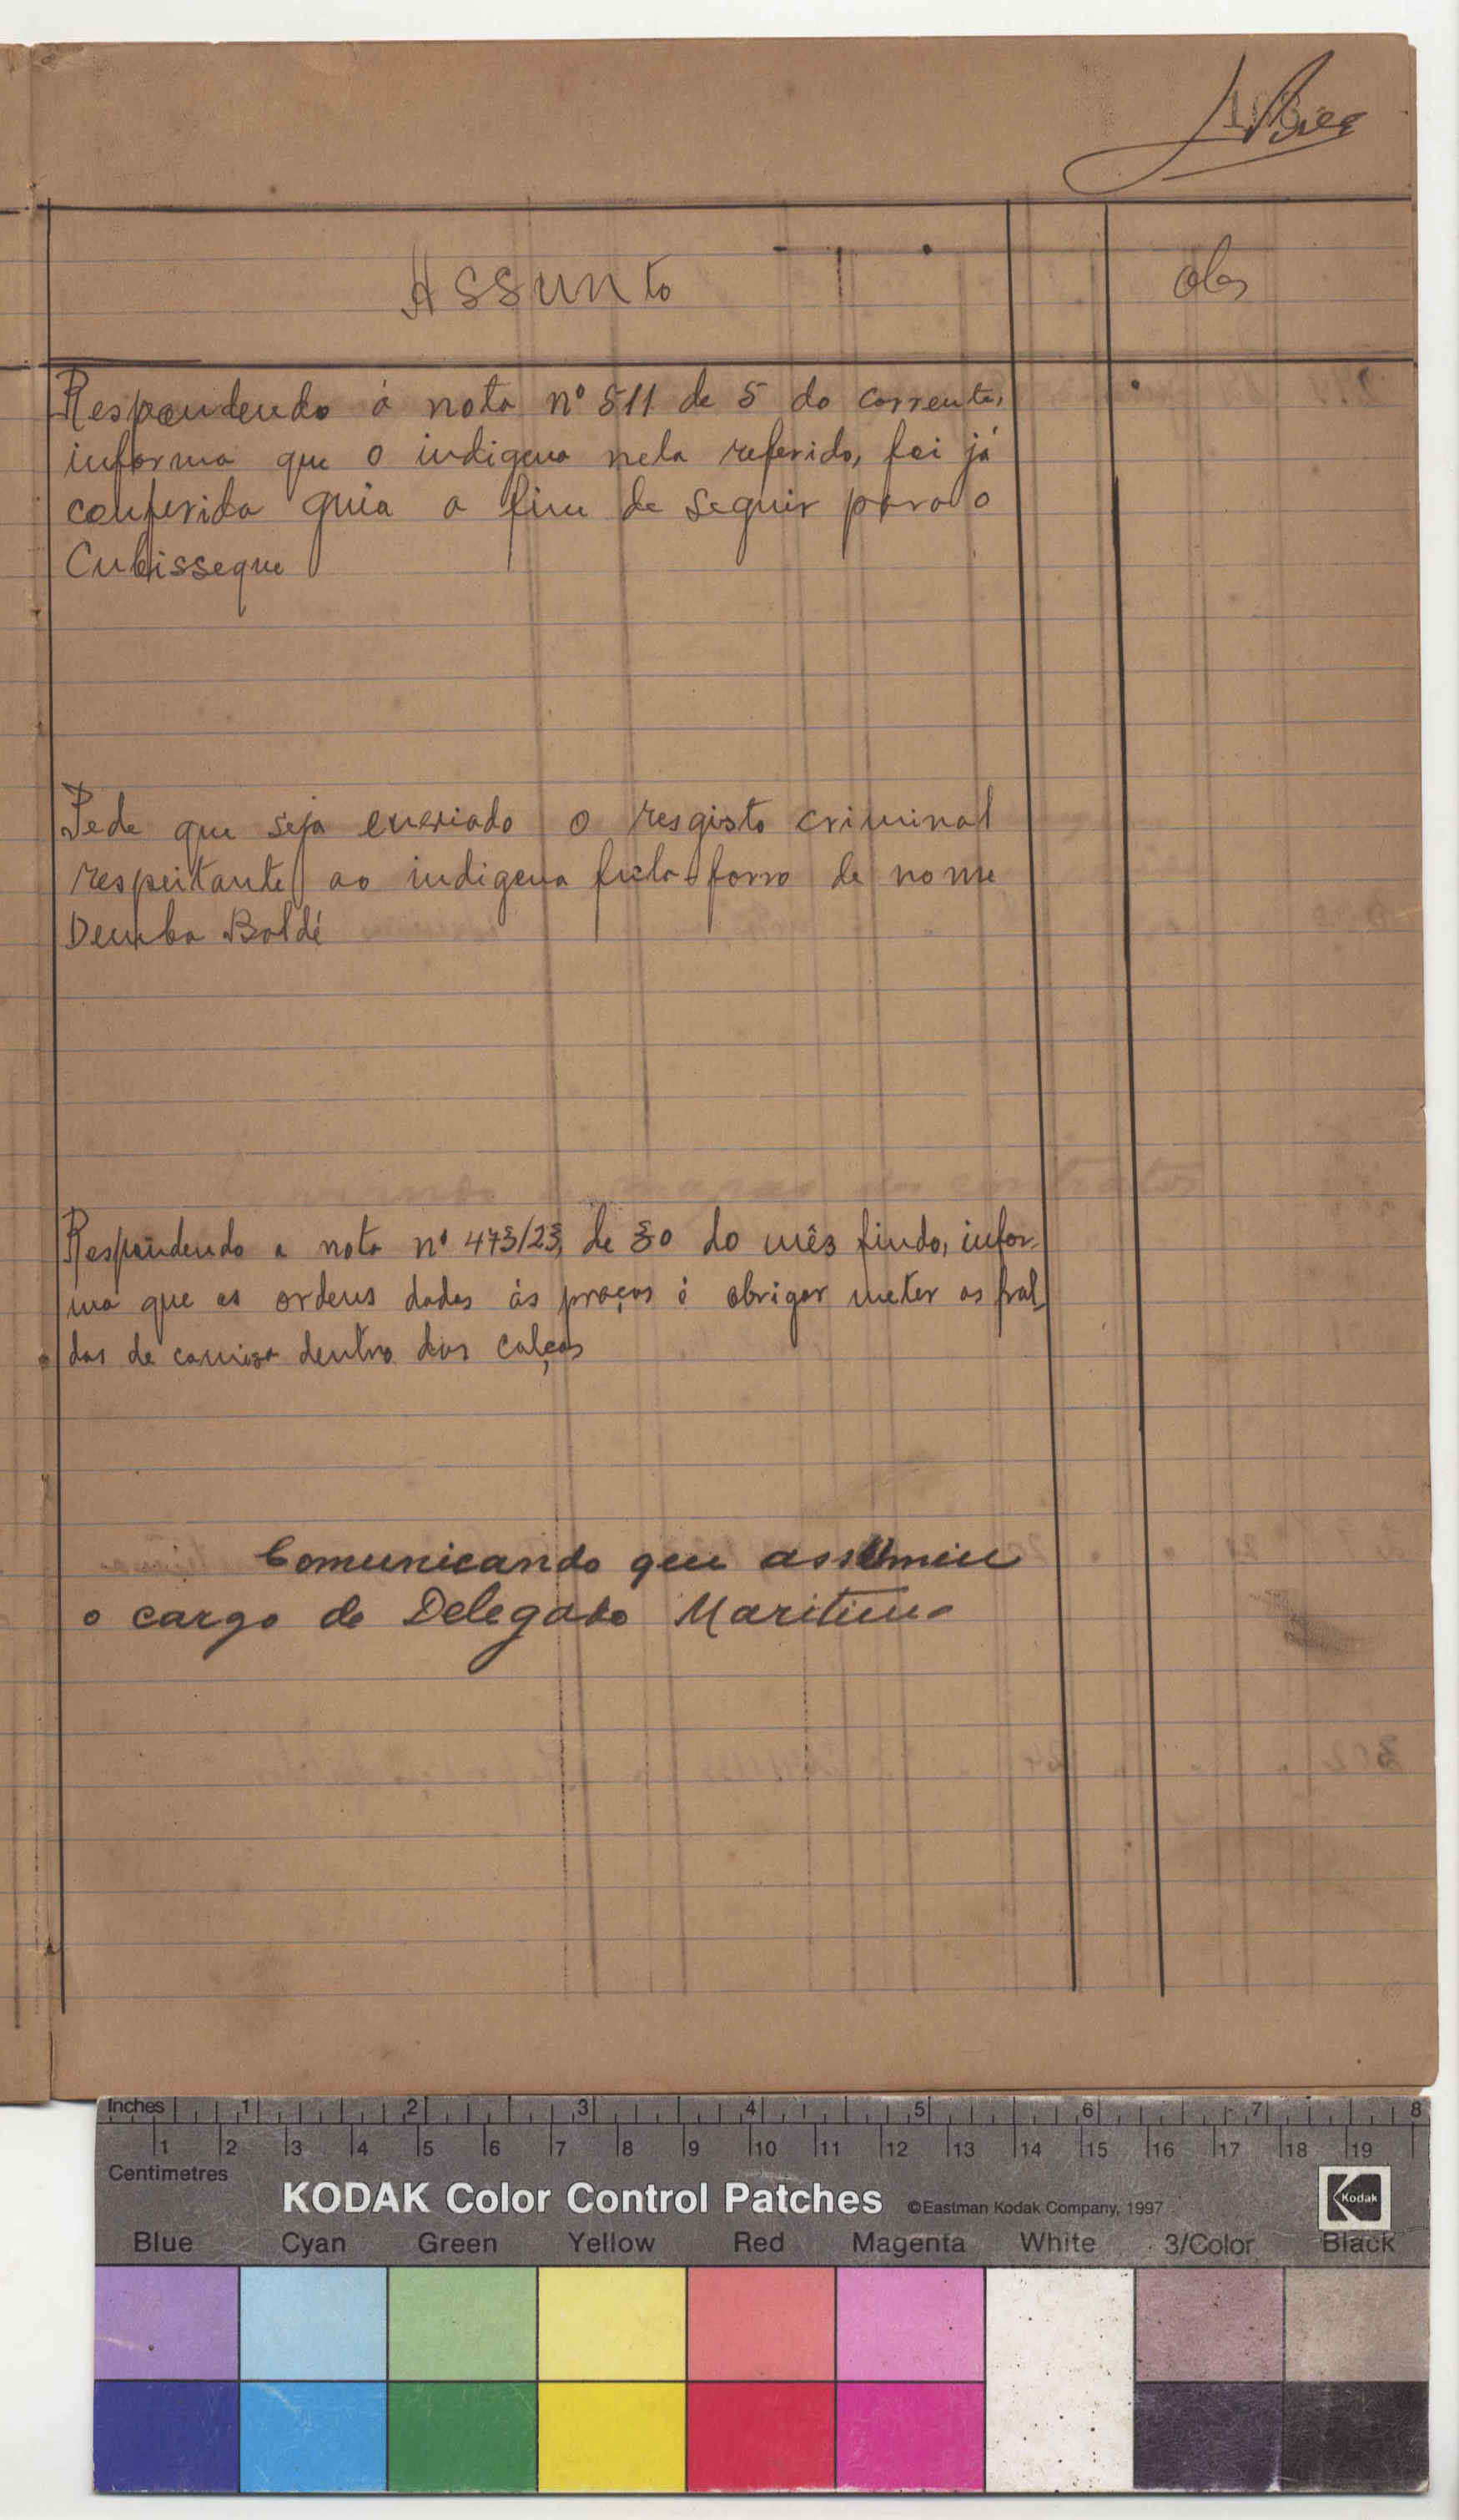 Assunto
obs
Respondendo á nota nº 511 de 5 do corrente,
informa que o indigena nela referido, foi já
conferida guia a fim de seguir para o
Cubisseque
Pede que seja enviado o resgisto criminal
respeitante ao indigena fula-forro de nome
Demba Baldé
Respondendo a nota nº 473/23, de 30 do mês findo, infor-
ma que as ordens dadas ás praças é obrigar meter as fral-
das de camisa dentro das calças
Comunicando que assumiu
o cargo de Delegado Maritimo
Inches 1 2 3 4 5 6 7 8
1 2 3 4 5 6 7 8 9 10 11 12 13 14 15 16 17 18 19
Centimetres
KODAK Color Control Patches ©Eastman Kodak Company, 1997 Kodak
Blue Cyan Green Yellow Red Magenta White 3/Color Black